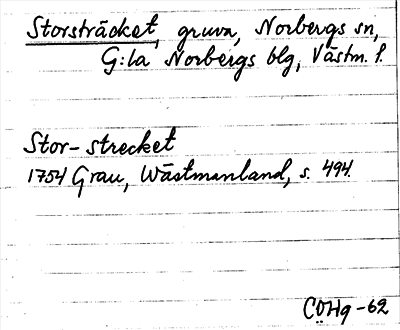 Storsträcket, gruva, Norbergs sn,
G:la Norbergs blg, Västm. l.
Stor-strecket
1754 Grau, Wästmanland, s. 494.
CÖHg-62